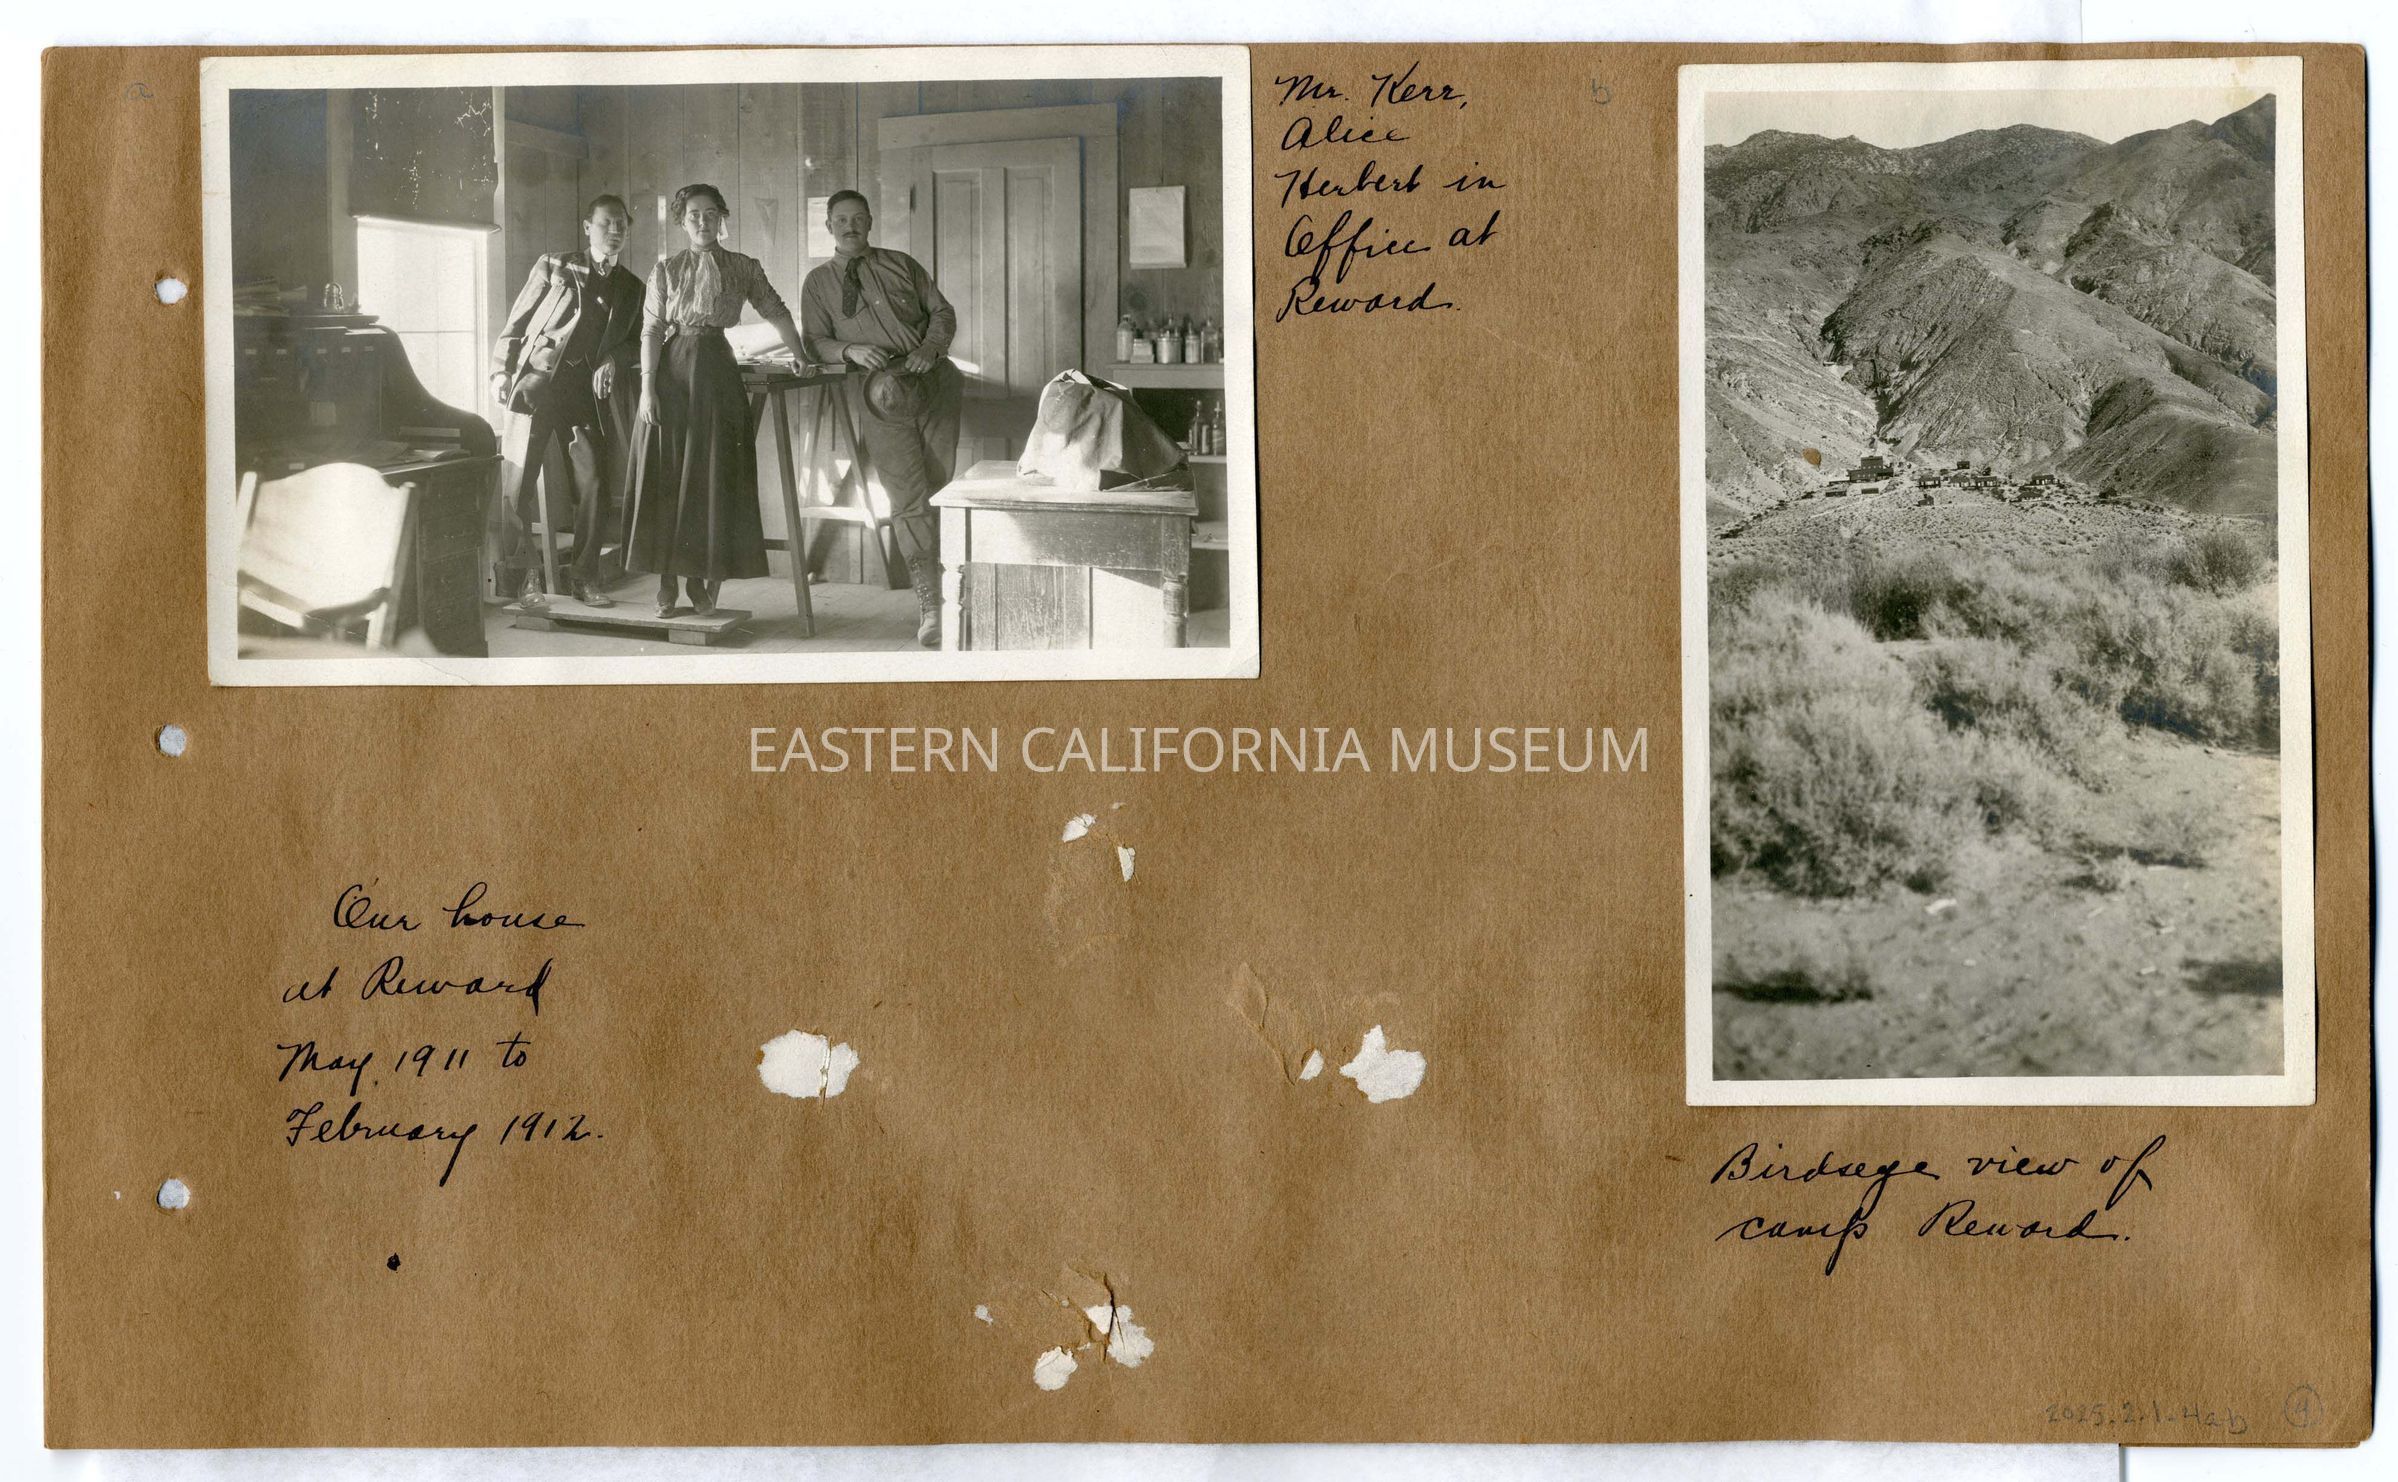 a
Mr. Kerr,
Alice
Herbert in
Office at
Reward.
b
EASTERN CALIFORNIA MUSEUM
Our house
at Reward
May, 1911 to
February 1912.
Birdseye view of
camp Reward.
2025.2.1-4ab
4